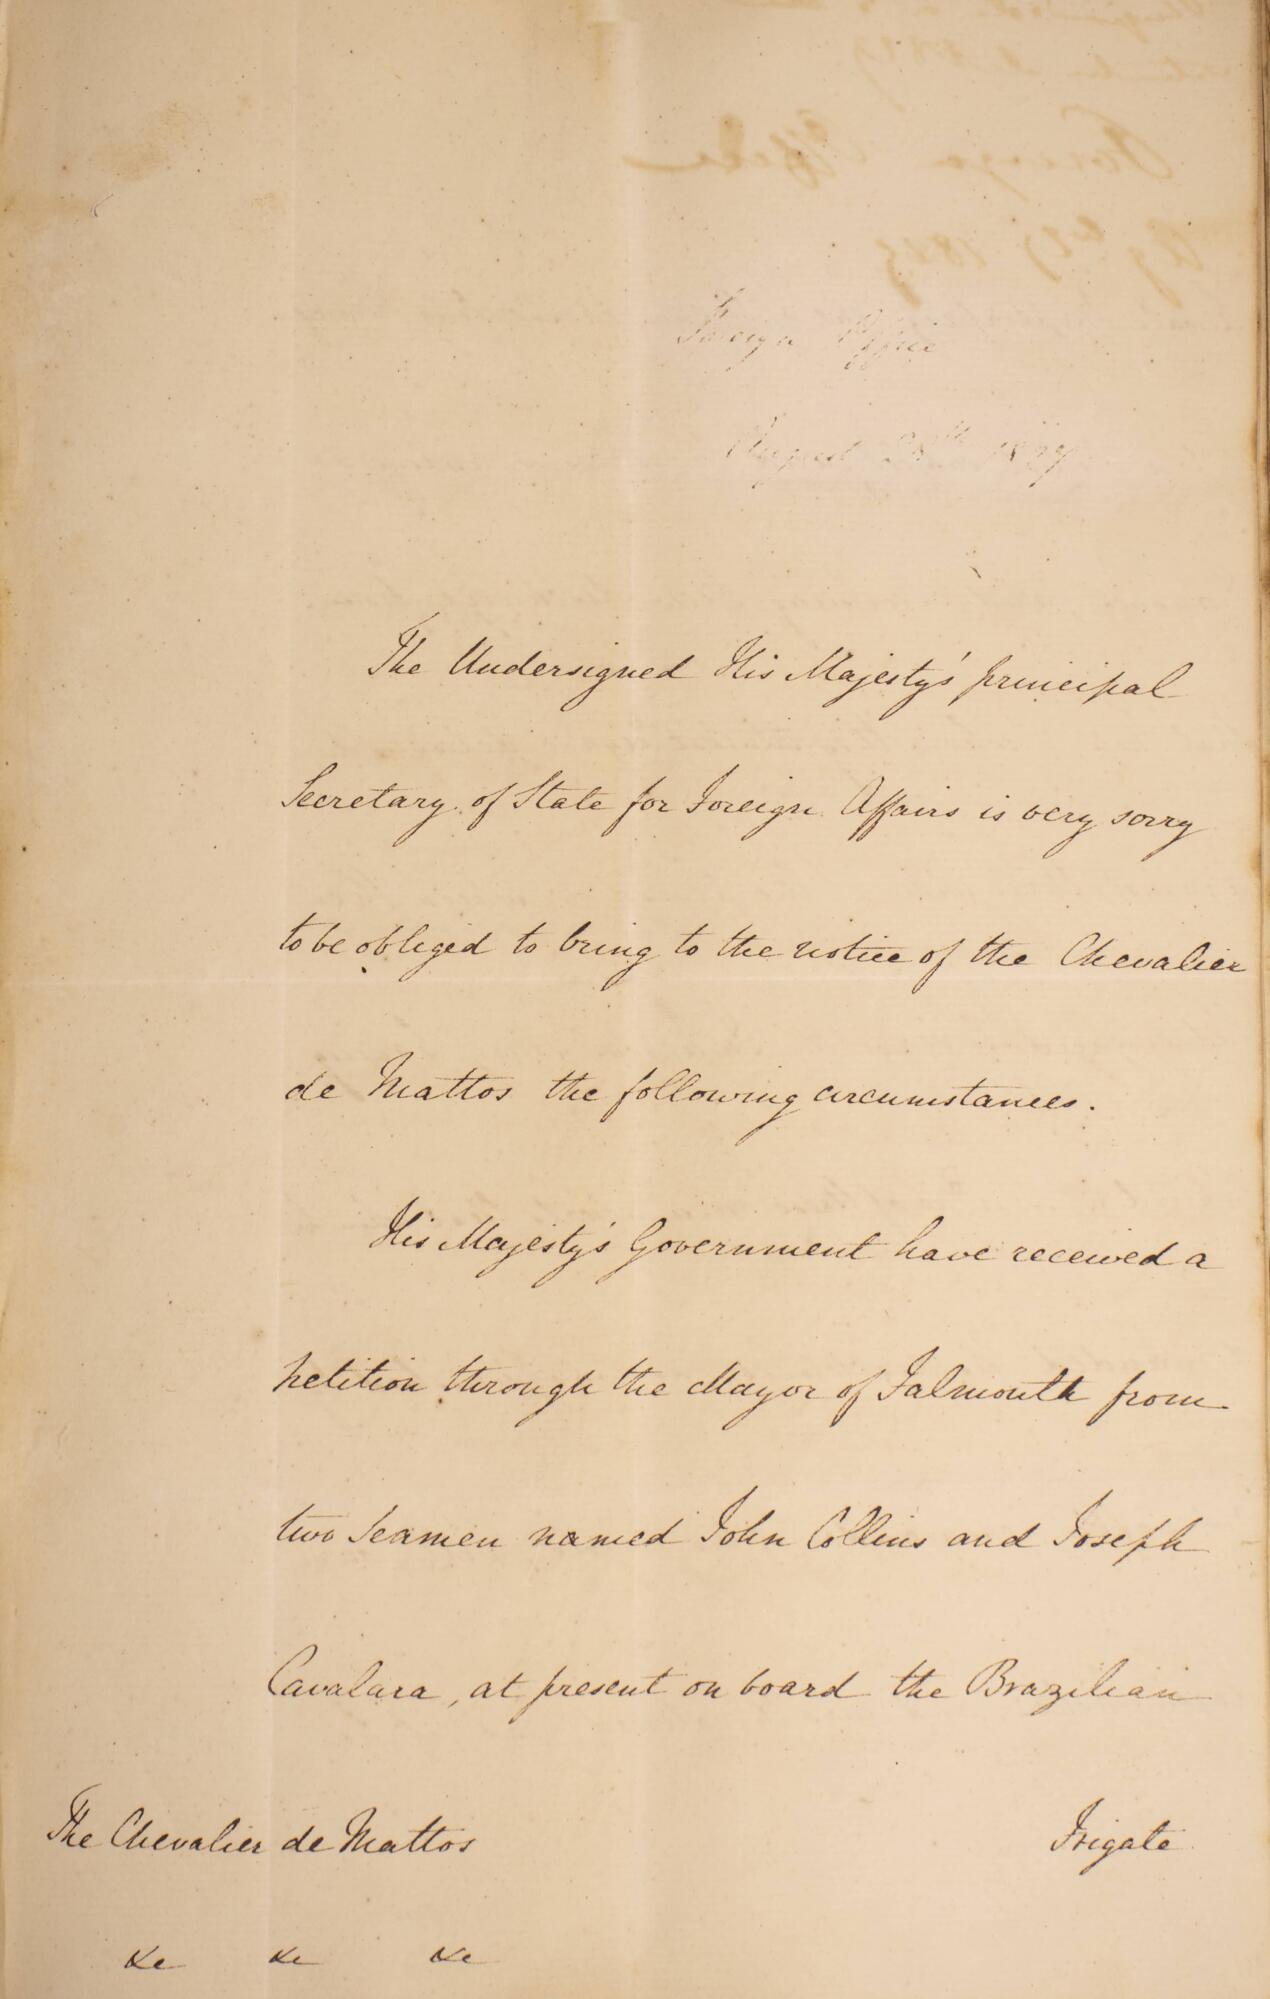 Foreign Office
August 28th 1829
The Undersigned His Majesty's principal
Secretary of State for Foreign Affairs is very sorry
to be obliged to bring to the notice of the Chevalier
de Mattos the following circumstances.
His Majesty's Government have received a
petition through the Mayor of Falmouth from
two Seamen named John Collins and Joseph
Cavalara, at present on board the Brazilian
Frigate
The Chevalier de Mattos
&c &c &c